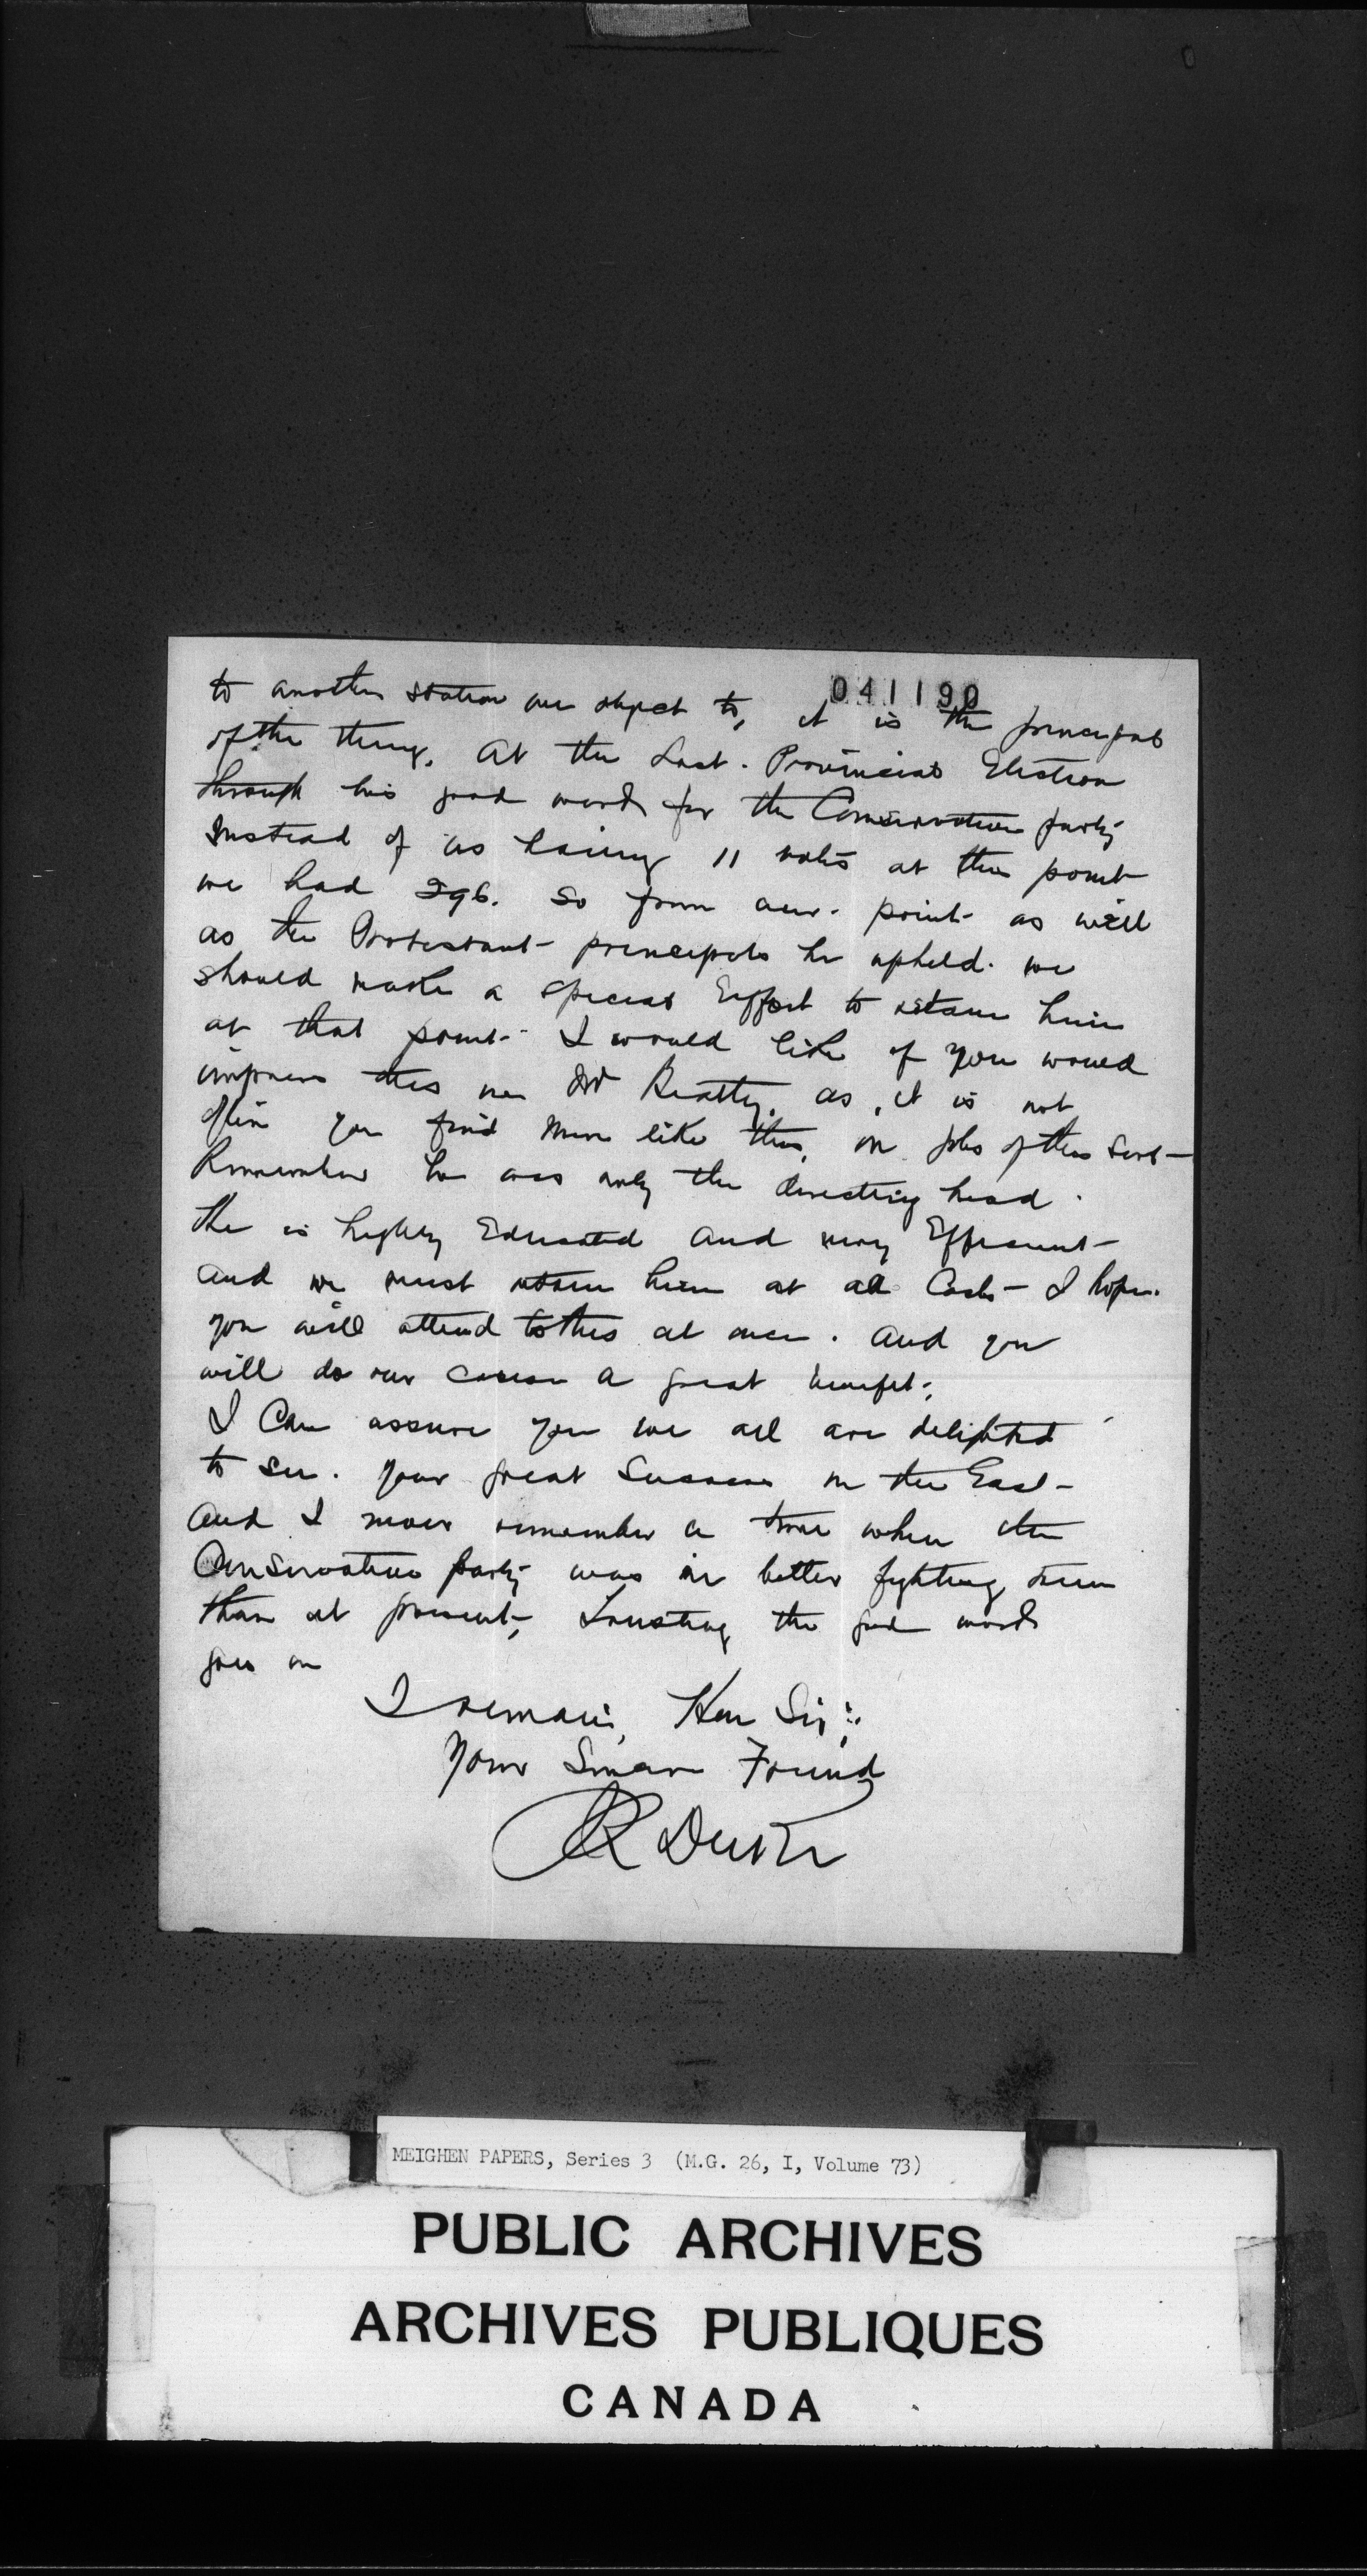 041190
to another station we object to, it is the principals
of the thing. At the Last. Provincial Election
through his good work for the Conservative party
instead of us having 11 votes at this point
we had 296. So from our. point as well
as the Protestant principals he upheld. we
should make a special Effort to retain him
at that point. I would like if you would
impress this on Mr Beatty. as, it is not
often you find men like this, on jobs of this sort—
Remember he was only the directing head.
He is highly Educated and very Efficient—
and we must retain him at all Costs— I hope.
you will attend to this at once. and you
will do our cause a great benefit.
I Can assure you we all are delighted
to see. your great Success in the East—
and I never remember a time when the
Conservative party was in better fighting trim
than at present, Trusting the good work
goes on
I remain, Hon Sir:
Your Sincere Friend
MEIGHEN PAPERS, Series 3 (M.G. 26, I, Volume 73)
PUBLIC ARCHIVES
ARCHIVES PUBLIQUES
CANADA